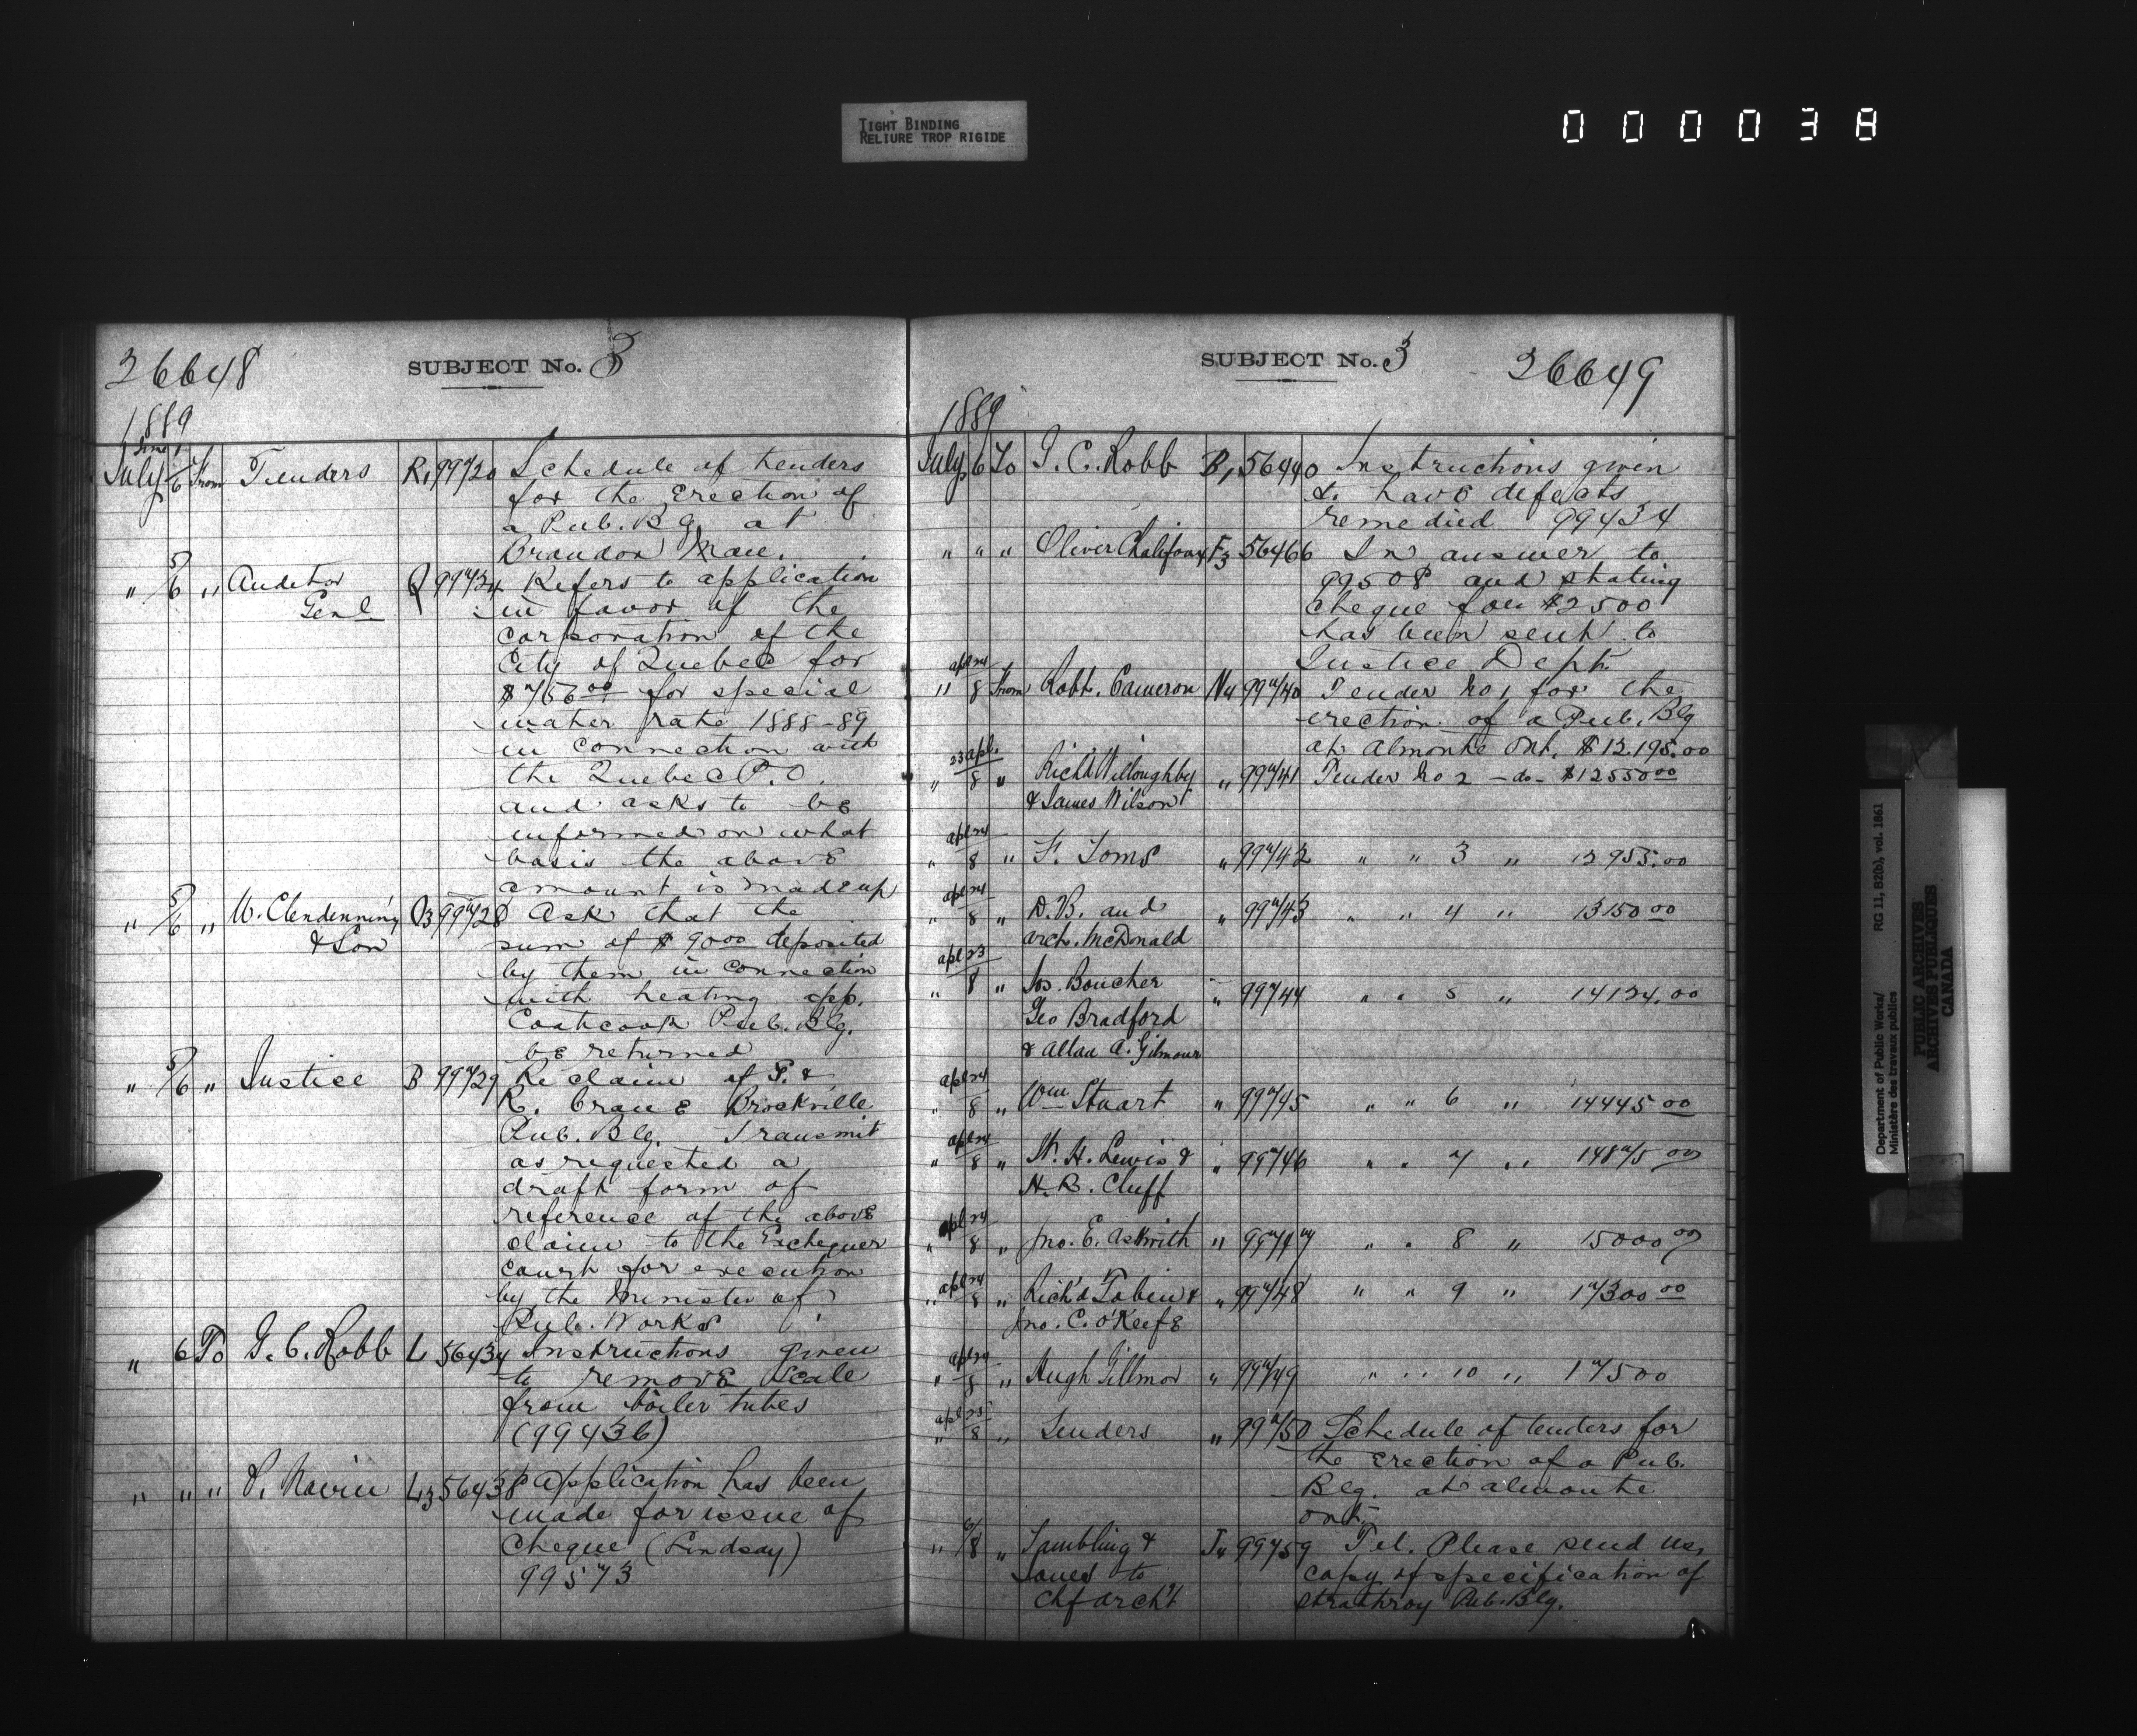 TIGHT BINDING
RELIURE TROP RIGIDE
000038
26648
SUBJECT No. 3
1889
July June 1/6 From Tenders R, 99720 Schedule of tenders
for the Erection of
a Pub. Bg. at
Brandon Man.
" 5/6 " Auditor Q 99724 Refers to application
Genl in favor of the
corporation of the
City of Quebec for
$756 00 for special
water rate 1888-89
in connection with
the Quebec P.O.
and asks to be
informed on what
basis the above
amount is made up
" 5/6 " W. Clendenning O3 99728 Ask that the
& Son sum of $ 9000 deposited
by them in connection
with heating app.
Coaticook Pub. Blg.
be returned
" 5/6 " Justice B 99729 Re claim of &
R. Crane Brockville
Pub. Blg. Transmit
as requested a
draft form of
reference of the above
claim to the Exchequer
court for execution
by the Minister of
Pub. Works
" 6 To G. C. Robb L 56434 Instructions given
to remove Scale
from boiler tubes
(99436)
" " " P. Navin L3 56438 Application has been
made for issue of
Cheque (Lindsay)
99573
SUBJECT No. 3
26649
1889
July 6 To G. C. Robb B, 56440 Instructions given
to have defects
remedied 99434
" " " Oliver F3 56466 In answer to
99508 and stating
cheque for $2500
has been sent to
Justice Dept.
" apl 24/8 From Robt. Cameron N4 99740 Tender No 1 for the
erection of a Pub. Blg
at Almonte Ont. $12.195.00
" 23 apl./8 " Richd Willoughby " 99741 Tender No 2 -do- $12550 00
& James Wilson
" apl 24/8 " F. Toms " 99742 " " 3 " 12955.00
" apl 24/8 " D. B. and " 99743 " " 4 " 13150 00
Arch. McDonald
" apl 23/8 " Jos. Boucher " 99744 " " 5 " 14124.00
Geo Bradford
& Allan A. Gilmour
" apl 24/8 " Wm Stuart " 99745 " " 6 " 14445 00
" apl 24/8 " W. H. Lewis & " 99746 " " 7 " 14875 00
H. R. Cluff
" apl 24/8 " Jno. E. Askwith " 99747 " " 8 " 15000 00
" apl 24/8 " Rich'd Tobin & " 99748 " " 9 " 17300 00
Jno. C. O'Keefe
" apl 24/8 " Hugh Gillmor " 99749 " " 10 " 17500
" apl 25/8 " Tenders " 99750 Schedule of tenders for
the Erection of a Pub.
Blg. at Almonte
Ont.
" 6/8 " Tambling & J4 99759 Tel. Please send us,
Jones to copy of specification of
Chf Archt Strathroy Pub. Blg.
Department of Public Works/
Ministère des travaux publics
RG 11, B2(b), vol. 1861
PUBLIC ARCHIVES
ARCHIVES PUBLIQUES
CANADA